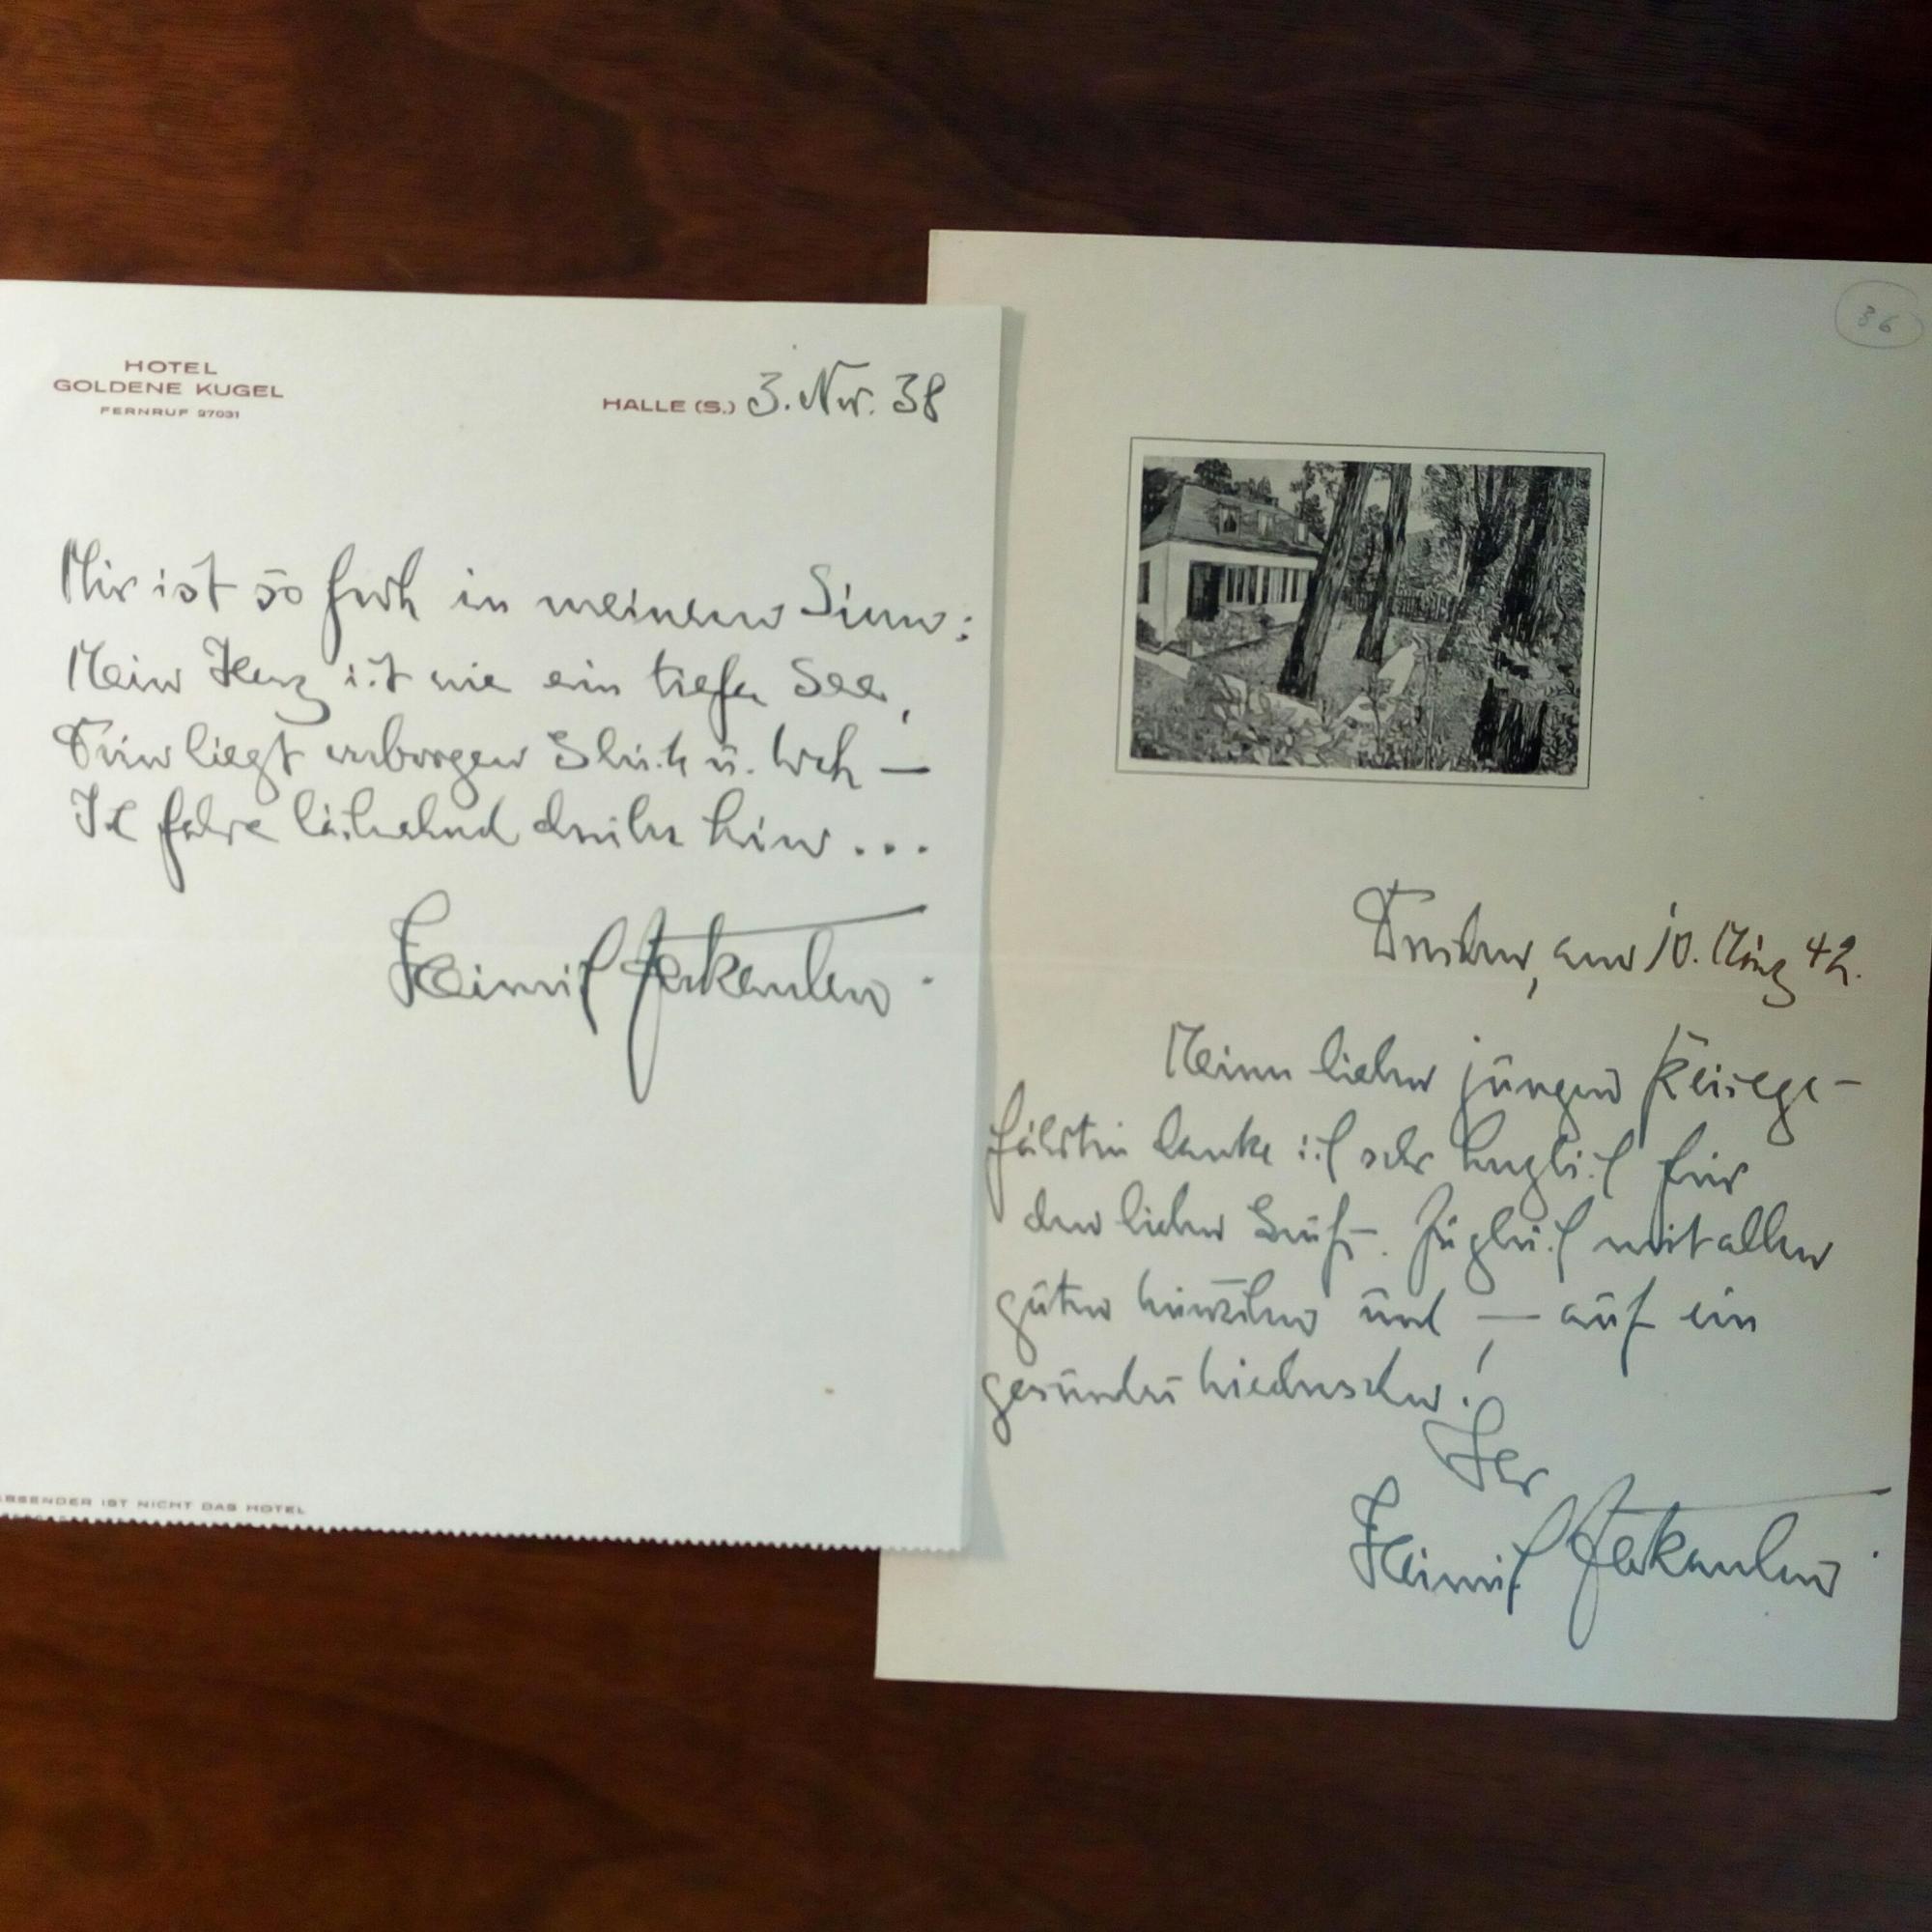 HOTEL
GOLDENE KUGEL
FERNRUF 27031
HALLE (S.) 3. Nov. 38
Mir ist so froh in meinem Sinn:
Mein Herz ist wie ein tiefer See,
Drin liegt verborgen Glück u. Weh —
Ich fahre lächelnd drüber hin ...
Heinrich Zerkaulen.
ABSENDER IST NICHT DAS HOTEL
36
Dresden, am 10. März 42.
Meiner lieben jungen Reisege-
fährtin danke ich sehr herzlich für
den lieben Gruß. Zugleich mit allen
guten Wünschen und — auf ein
gesundes Wiedersehen!
Ihr
Heinrich Zerkaulen.